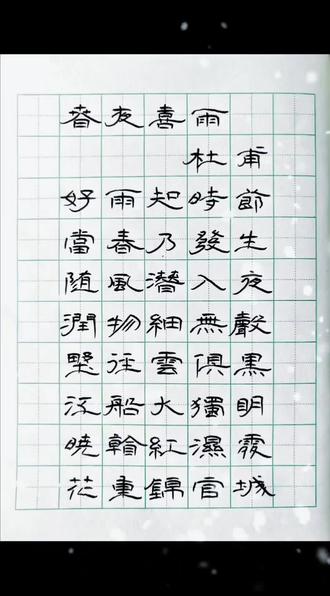 春夜喜雨
杜甫
好雨知時節
當春乃發生
随風潛入夜
潤物細無聲
野徑雲俱黑
江船火獨明
曉看紅濕處
花重錦官城